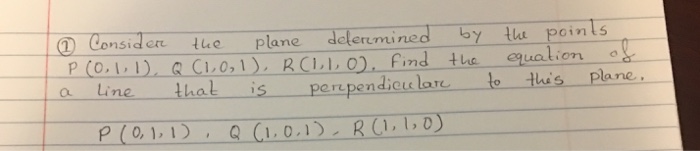 ① Consider the plane determined by the points
P (0,1,1), Q (1,0,1), R (1,1,0). Find the equation of
a line that is perpendicular to this plane.
P (0,1,1), Q (1,0,1), R (1,1,0)